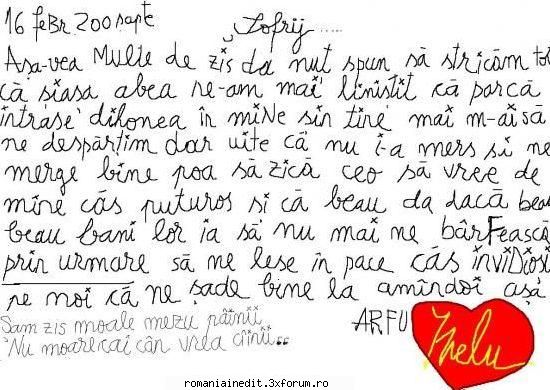 16 feBr 200 sapte
Zofrij .....
Asa-vea Multe de zis da nut spun să stricăm tot
că siasa abea ne-am mai linistit că parcă
intrase dihonea în miNe sin tine mai m-ai să
ne despărțim dar uite că nu i-a mers si ne
merge bine poa să zică ceo să vree de
mine căs puturos si că beau da dacă beau
beau bani lor ia să nu mai ne bârFească
prin urmare să ne lese în pace căs inviDiosi
pe noi că ne șade bine la amîndoi așa
Sam zis moale mezu păinii
Nu moare cai cân vrea cîinii..
ARFU
Ghelu
romaniainedit.3xforum.ro